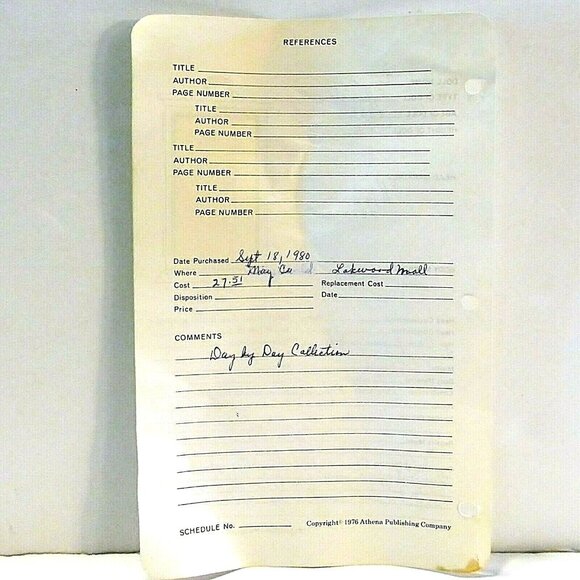 REFERENCES
TITLE
AUTHOR
PAGE NUMBER
TITLE
AUTHOR
PAGE NUMBER
TITLE
AUTHOR
PAGE NUMBER
TITLE
AUTHOR
PAGE NUMBER
Date Purchased Sept 18, 1980
Where May Co Lakewood Mall
Cost 27.51 Replacement Cost
Disposition Date
Price
COMMENTS
Day by Day Collection
SCHEDULE No. Copyright© 1976 Athena Publishing Company